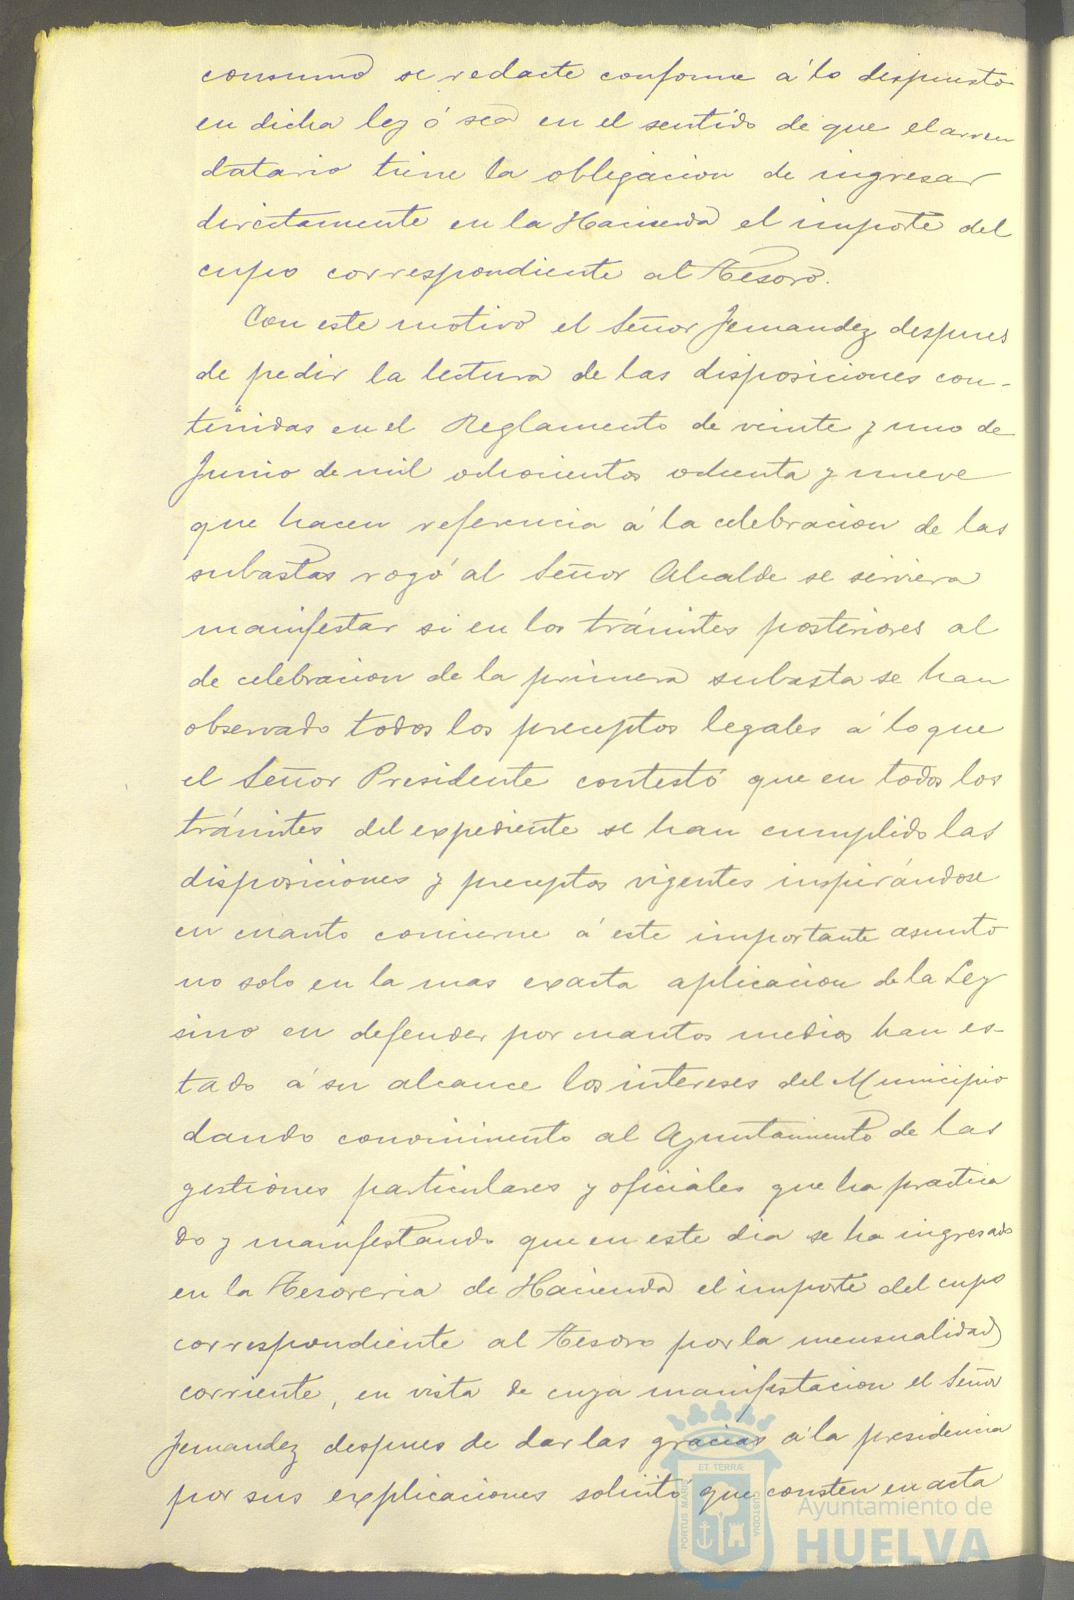 consumo se redacte conforme á lo dispuesto
en dicha ley ó sea en el sentido de que el arren
datario tiene la obligacion de ingresar
directamente en la Hacienda el importe del
cupo correspondiente al Tesoro.
Con este motivo el Señor Fernandez despues
de pedir la lectura de las disposiciones con-
tenidas en el Reglamento de veinte y uno de
Junio de mil ochocientos ochenta y nueve
que hacen referencia á la celebracion de las
subastas rogó al Señor Alcalde se sirviera
manifestar si en los trámites posteriores al
de celebracion de la primera subasta se han
observado todos los preceptos legales á lo que
el Señor Presidente contestó que en todos los
trámites del expediente se han cumplido las
disposiciones y preceptos vigentes inspirándose
en cuanto concierne á este importante asunto
no solo en la mas exacta aplicacion de la Ley
sino en defender por cuantos medios han es-
tado á su alcance los intereses del Municipio
dando conocimiento al Ayuntamiento de las
gestiones particulares y oficiales que ha practica
do y manifestando que en este dia se ha ingresado
en la Tesoreria de Hacienda el importe del cupo
correspondiente al Tesoro por la mensualidad
corriente, en vista de cuya manifestacion el Señor
Fernandez despues de dar las gracias á la presidencia
por sus explicaciones solicitó que consten en acta
PORTUS MARIS
ET TERRÆ
CUSTODIA
Ayuntamiento de
HUELVA